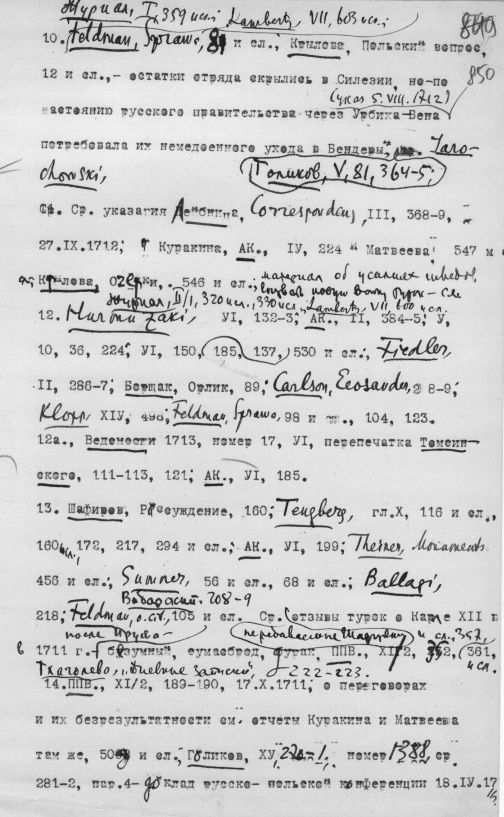 Журнал, I, 359 и сл. Lamberty, VII, 603 и сл.
10. Feldman, Sprawa, и сл., Крылова, Польский вопрос, 849
12 и сл.,- остатки отряда скрылись в Силезии, но-по 850
(указ 5. VIII. 1712)
настоянию русского правительства через Урбиха-Вена
потребовала их немедоенного ухода в Бендеры,
Голиков, V, 81, 364-5;
Ср. указагия Лейбница, Correspondenz, III, 368-9,
27.IX.1712; Куракина, АК., IУ, 224 Матвеева 547
Крылова, Очерки, 546 и сл.;
Журнал, II/1, 320 и сл., 330 и сл., Lamberty, VII, 600 и сл.
12. Hurmuzaki, УI, 132-3; АК., II, 384-5; У,
10, 36, 224; УI, 150, 185, 137, 530 и сл.; Fiedler,
II, 286-7; Борщак, Орлик, 89; Carlson, Eeosander, 8-9;
Klopp XIУ, Feldman, Sprawa, 98 и 104, 123.
12а., Ведемости 1713, номер 17, УI, перепечатка Томсин-
ского, 111-113, 121; АК., УI, 185.
13. Шафиров, Рассуждение, 160; Tengberg, гл.X, 116 и сл.,
160 и сл., 172, 217, 294 и сл.; АК., УI, 199; Theiner, Monuments
456 и сл.; Sumner, 56 и сл., 68 и сл.; Ballagi,
208-9
218; Feldman, o.cit, 105 и сл. Ср. отзывы турок о Карле XII
после Прута передаваемые Шафировым и сл., 357,
в 1711 г. безумный, сумасброд, дурак, ППВ., XI/2, 352, (361, и сл.
Дневные записки, 222-223.
14. ППВ., XI/2, 189-190, 17.X.1711; о переговорах
и их безрезультатности см. отчеты Куракина и Матвеева
там же, и сл., Голиков, ХУ, номер 1388, ср
281-2, пар.4- доклад русско- польской конференции 18.IУ.17